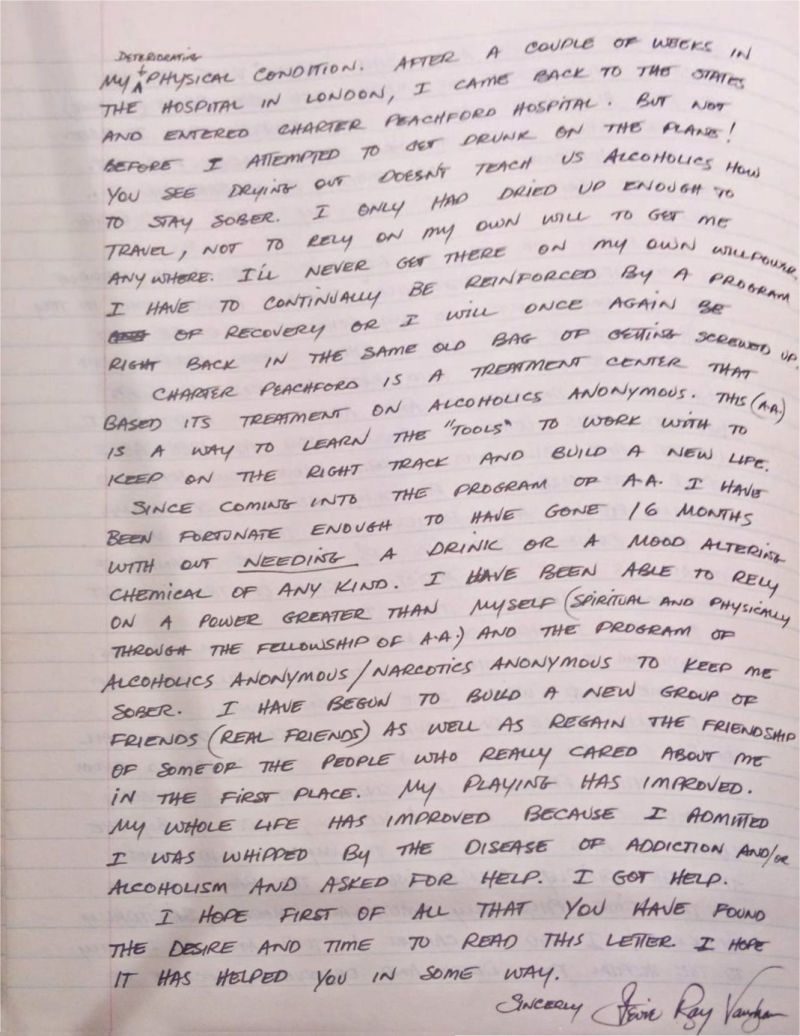 DETERIORATING
MY PHYSICAL CONDITION. AFTER A COUPLE OF WEEKS IN
THE HOSPITAL IN LONDON, I CAME BACK TO THE STATES
AND ENTERED CHARTER PEACHFORD HOSPITAL. BUT NOT
BEFORE I ATTEMPTED TO GET DRUNK ON THE PLANE!
YOU SEE DRYING OUT DOESNT TEACH US ALCOHOLICS HOW
TO STAY SOBER. I ONLY HAD DRIED UP ENOUGH TO
TRAVEL, NOT TO RELY ON MY OWN WILL TO GET ME
ANYWHERE. I'LL NEVER GET THERE ON MY OWN WILLPOWER.
I HAVE TO CONTINUALLY BE REINFORCED BY A PROGRAM
OF RECOVERY OR I WILL ONCE AGAIN BE
RIGHT BACK IN THE SAME OLD BAG OF GETTING SCREWED UP.
CHARTER PEACHFORD IS A TREATMENT CENTER THAT
BASED ITS TREATMENT ON ALCOHOLICS ANONYMOUS. THIS (A.A.)
IS A WAY TO LEARN THE "TOOLS" TO WORK WITH TO
KEEP ON THE RIGHT TRACK AND BUILD A NEW LIFE.
SINCE COMING INTO THE PROGRAM OF A.A. I HAVE
BEEN FORTUNATE ENOUGH TO HAVE GONE 16 MONTHS
WITH OUT NEEDING A DRINK OR A MOOD ALTERING
CHEMICAL OF ANY KIND. I HAVE BEEN ABLE TO RELY
ON A POWER GREATER THAN MYSELF (SPIRITUAL AND PHYSICALLY
THROUGH THE FELLOWSHIP OF A.A.) AND THE PROGRAM OF
ALCOHOLICS ANONYMOUS/NARCOTICS ANONYMOUS TO KEEP ME
SOBER. I HAVE BEGUN TO BUILD A NEW GROUP OF
FRIENDS (REAL FRIENDS) AS WELL AS REGAIN THE FRIENDSHIP
OF SOME OF THE PEOPLE WHO REALLY CARED ABOUT ME
IN THE FIRST PLACE. MY PLAYING HAS IMPROVED.
MY WHOLE LIFE HAS IMPROVED BECAUSE I ADMITTED
I WAS WHIPPED BY THE DISEASE OF ADDICTION AND/OR
ALCOHOLISM AND ASKED FOR HELP. I GOT HELP.
I HOPE FIRST OF ALL THAT YOU HAVE FOUND
THE DESIRE AND TIME TO READ THIS LETTER. I HOPE
IT HAS HELPED YOU IN SOME WAY.
SINCERLY Stevie Ray Vaughan